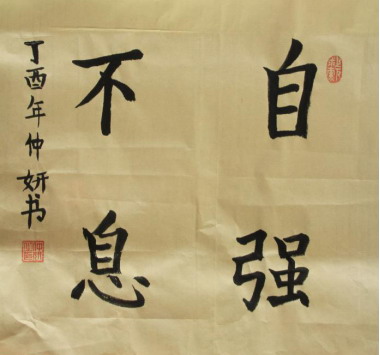 自强
不息
丁酉年仲妍书